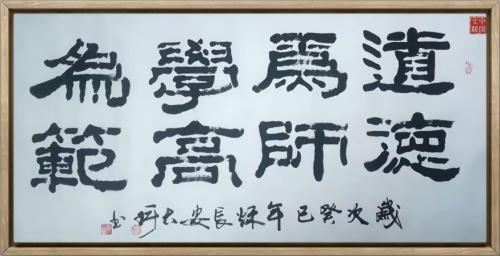 道德
爲師
學高
為範
歲次癸巳年長安大書
中国文联